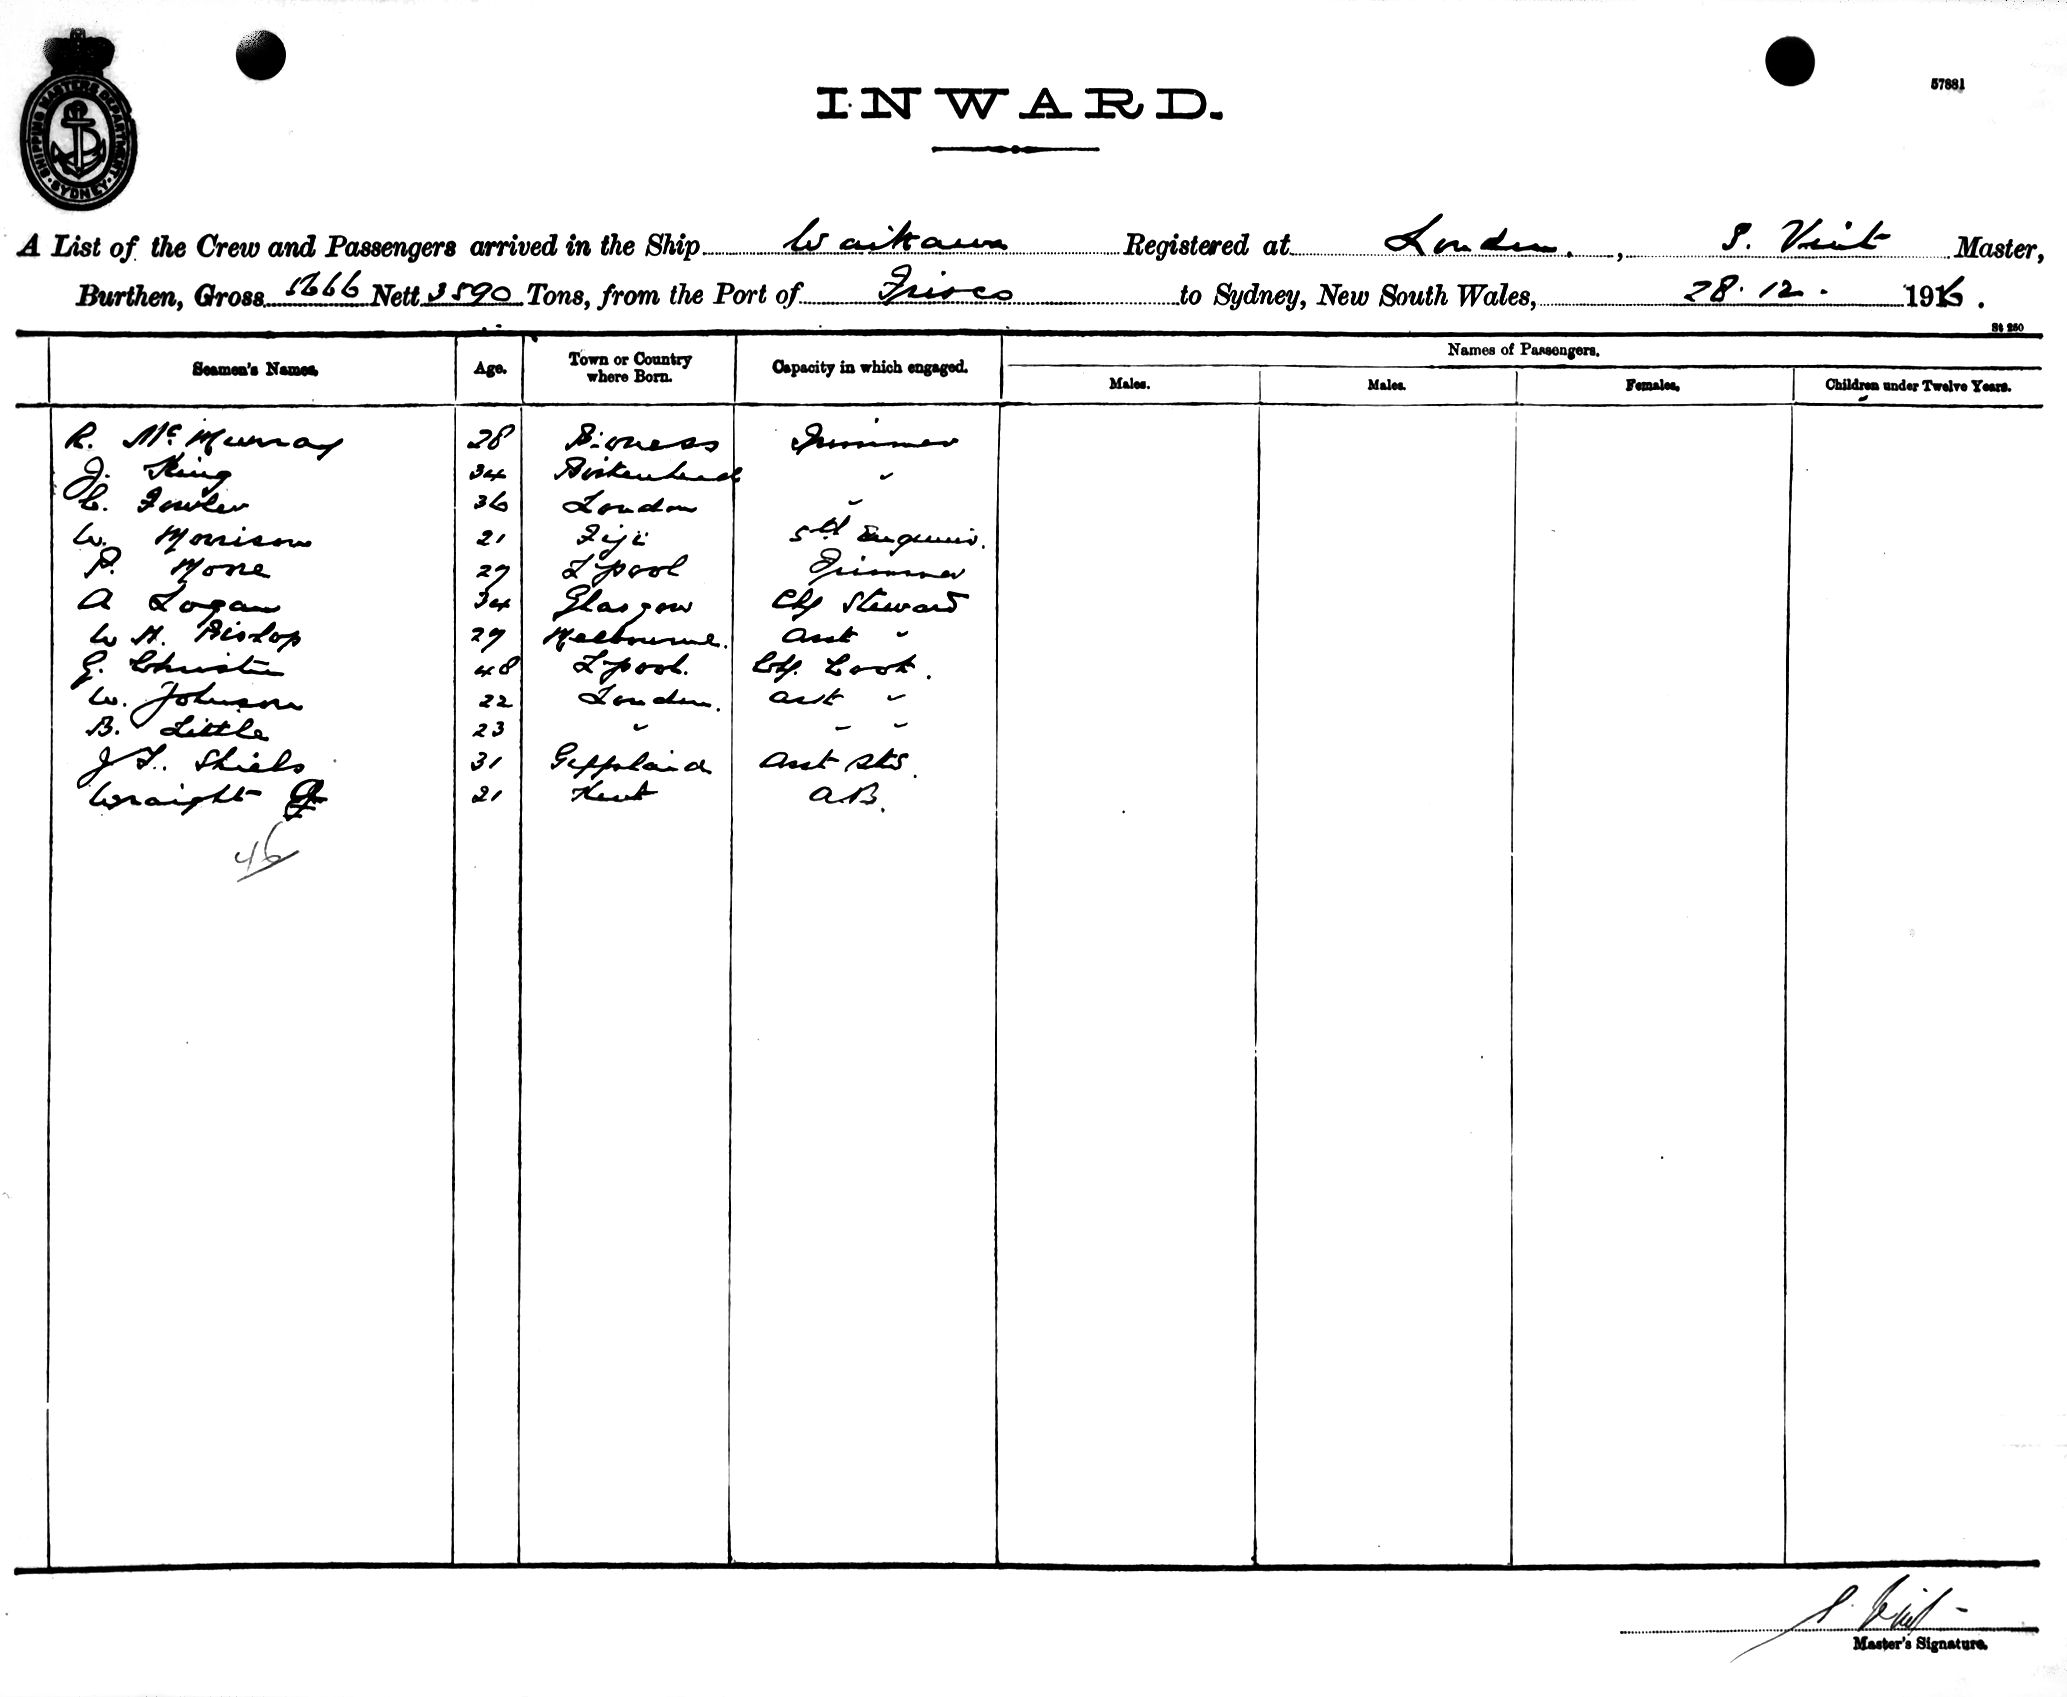 SHIPPING MASTERS DEPARTMENT SYDNEY
57881
INWARD.
A List of the Crew and Passengers arrived in the Ship Waikawa Registered at London, S. Veint Master,
Burthen, Gross 5666 Nett 3590 Tons, from the Port of Frisco to Sydney, New South Wales, 28.12. 1916.
St 250
Seamen's Names. Age. Town or Country where Born. Capacity in which engaged. Names of Passengers.
Males. Males. Females. Children under Twelve Years.
R. McMurray 28 Trimmer
J. King 34 Birkenhead "
C. Fowler 36 London "
W. Morrison 21 Fiji 5th Engineer.
P. Mone 29 L'pool Trimmer
A Logan 34 Glasgow Chf Steward
W H. Bishop 29 Melbourne. asst "
G. Christie 48 L'pool. Chf. Cook.
W. Johnson 22 London. asst "
B. Little 23 " " "
J L. Shiels 31 Gippsland Asst Std.
Wraight G 21 Kent A.B.
46
Master's Signature.